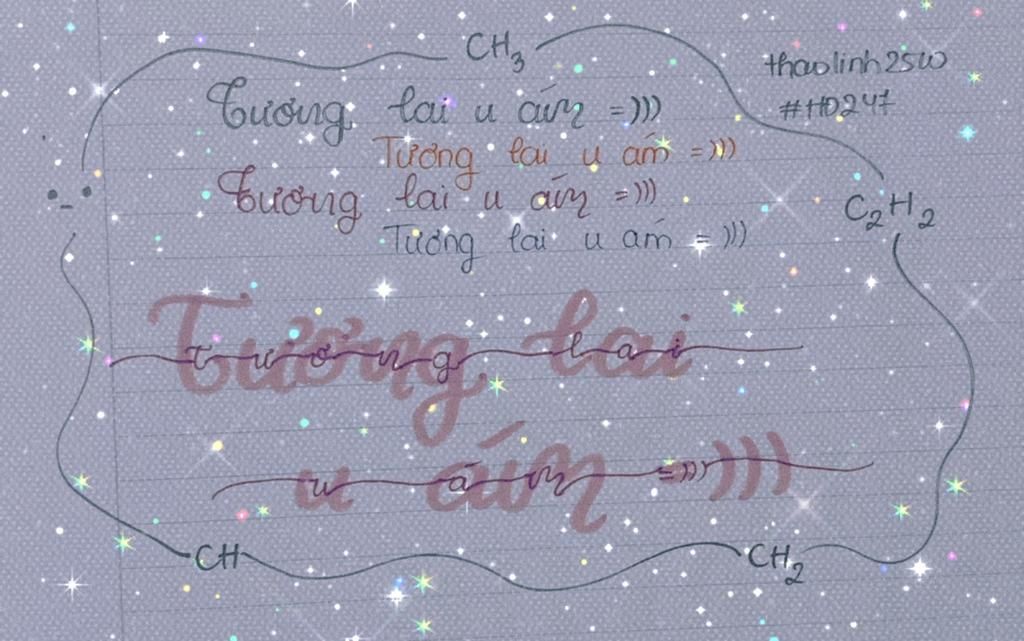 CH₃
thaolinh25w
#HD247
Tương lai u ám =)))
Tương lai u ám =)))
Tương lai u ám =)))
Tương lai u ám =)))
C₂H₂
Tương lai
Tương lai
u ám =)))
u ám )))
CH
CH₂